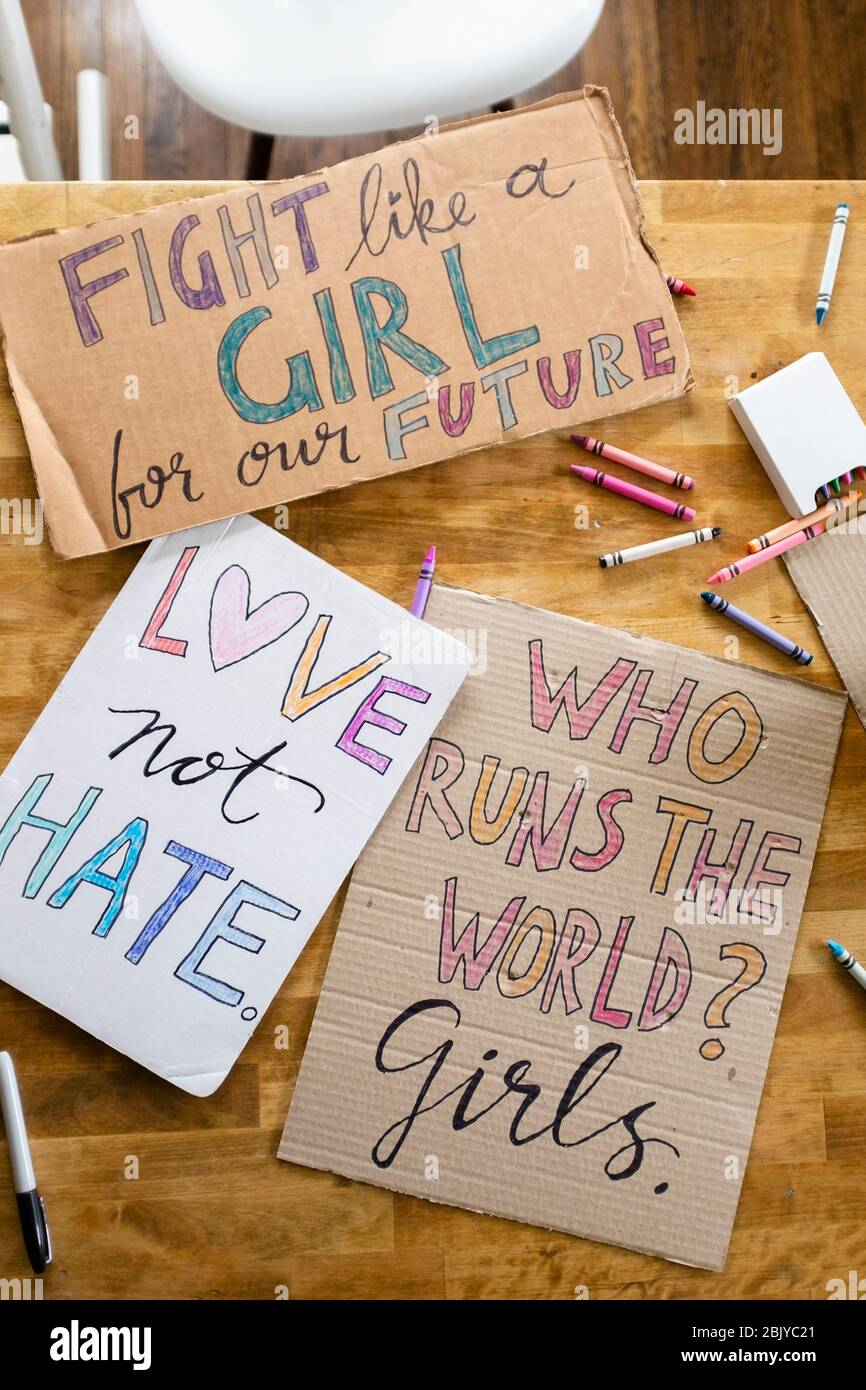 FIGHT like a
GIRL
for our FUTURE
LOVE
not
HATE.
WHO
RUNS THE
WORLD?
Girls.
alamy
alamy
Image ID: 2BJYC21
www.alamy.com